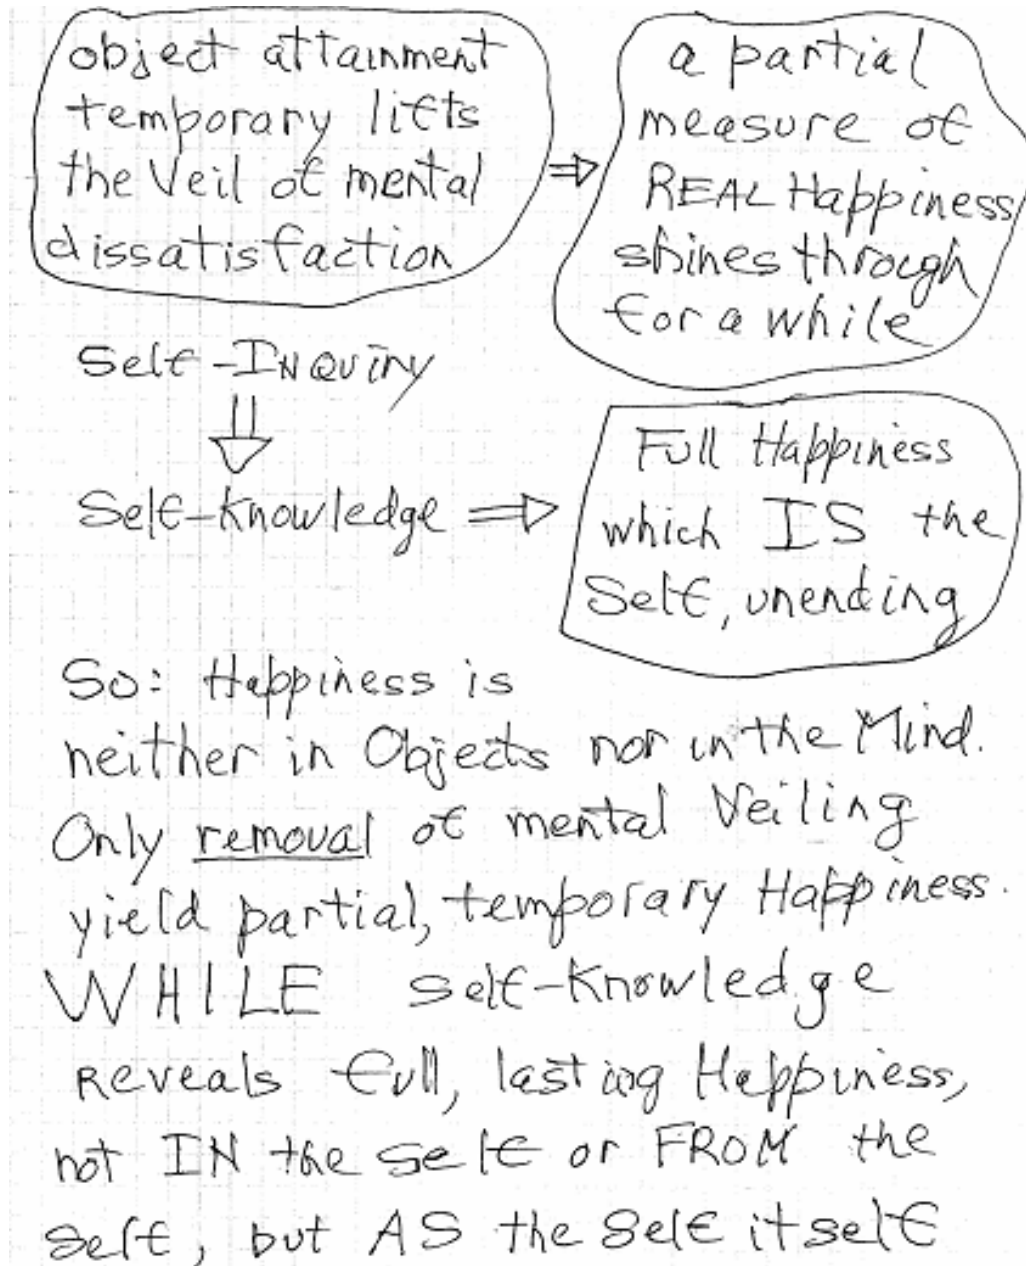 object attainment
temporary lifts
the Veil of mental
dissatisfaction
⇒
a partial
measure of
REAL Happiness
shines through
for a while
Self-INQUIRY
⇓
Self-Knowledge ⇒
Full Happiness
which IS the
Self, unending
So: Happiness is
neither in Objects nor in the Mind.
Only removal of mental Veiling
yield partial, temporary Happiness.
WHILE Self-Knowledge
Reveals full, lasting Happiness,
not IN the Self or FROM the
Self, but AS the Self itself